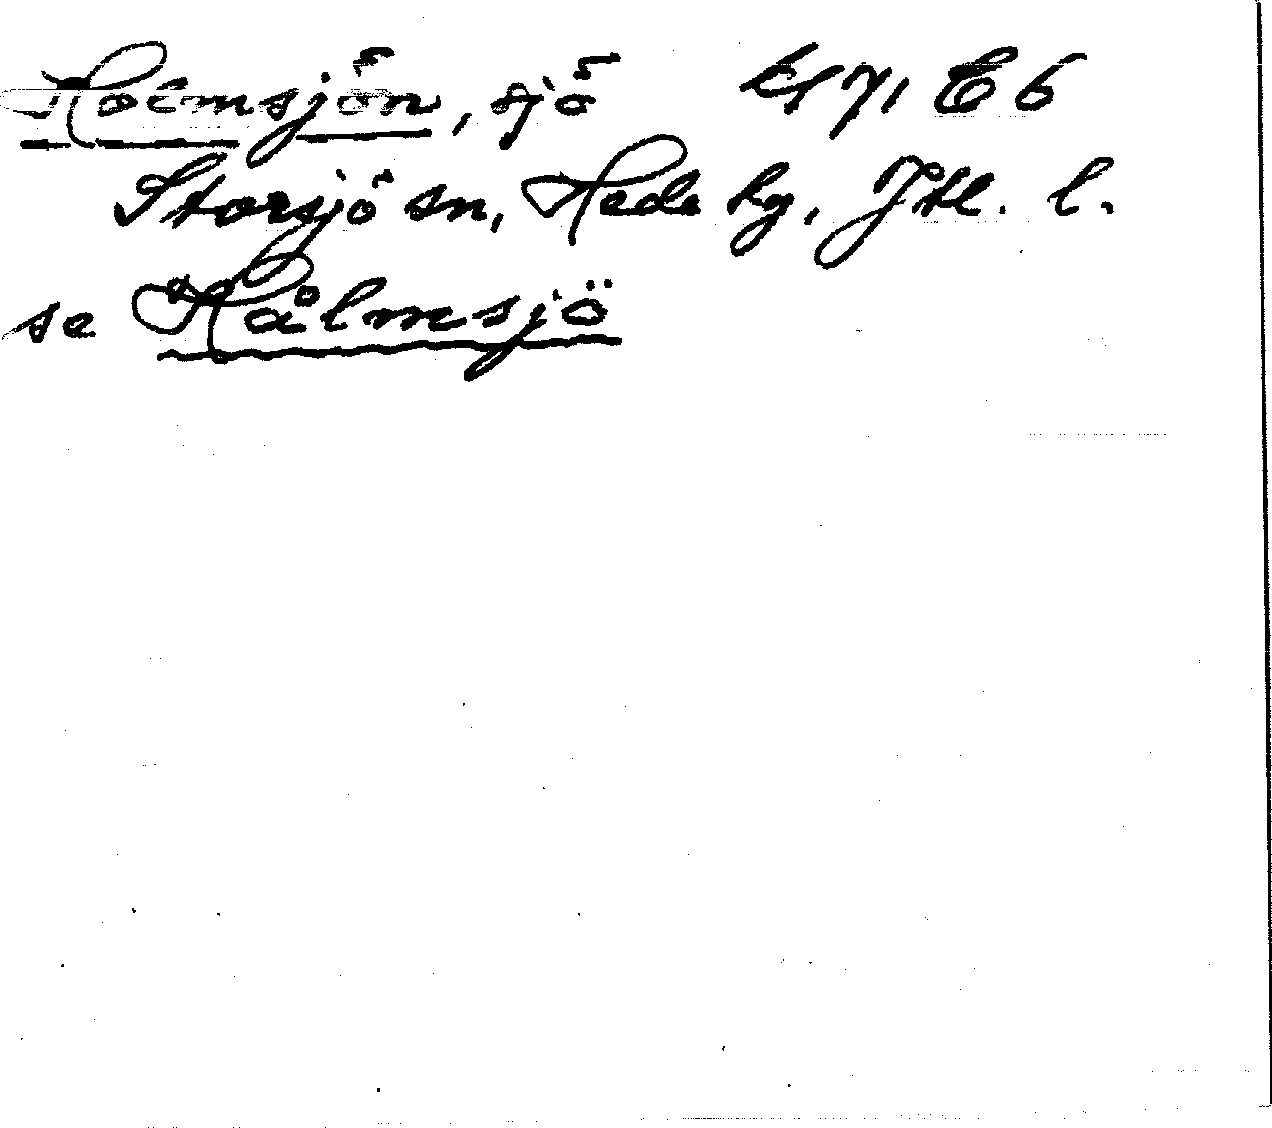 Holmsjön, sjö bl 71 E6
Storsjö sn, Hede hg, Jtl. l.
se Hålmsjö